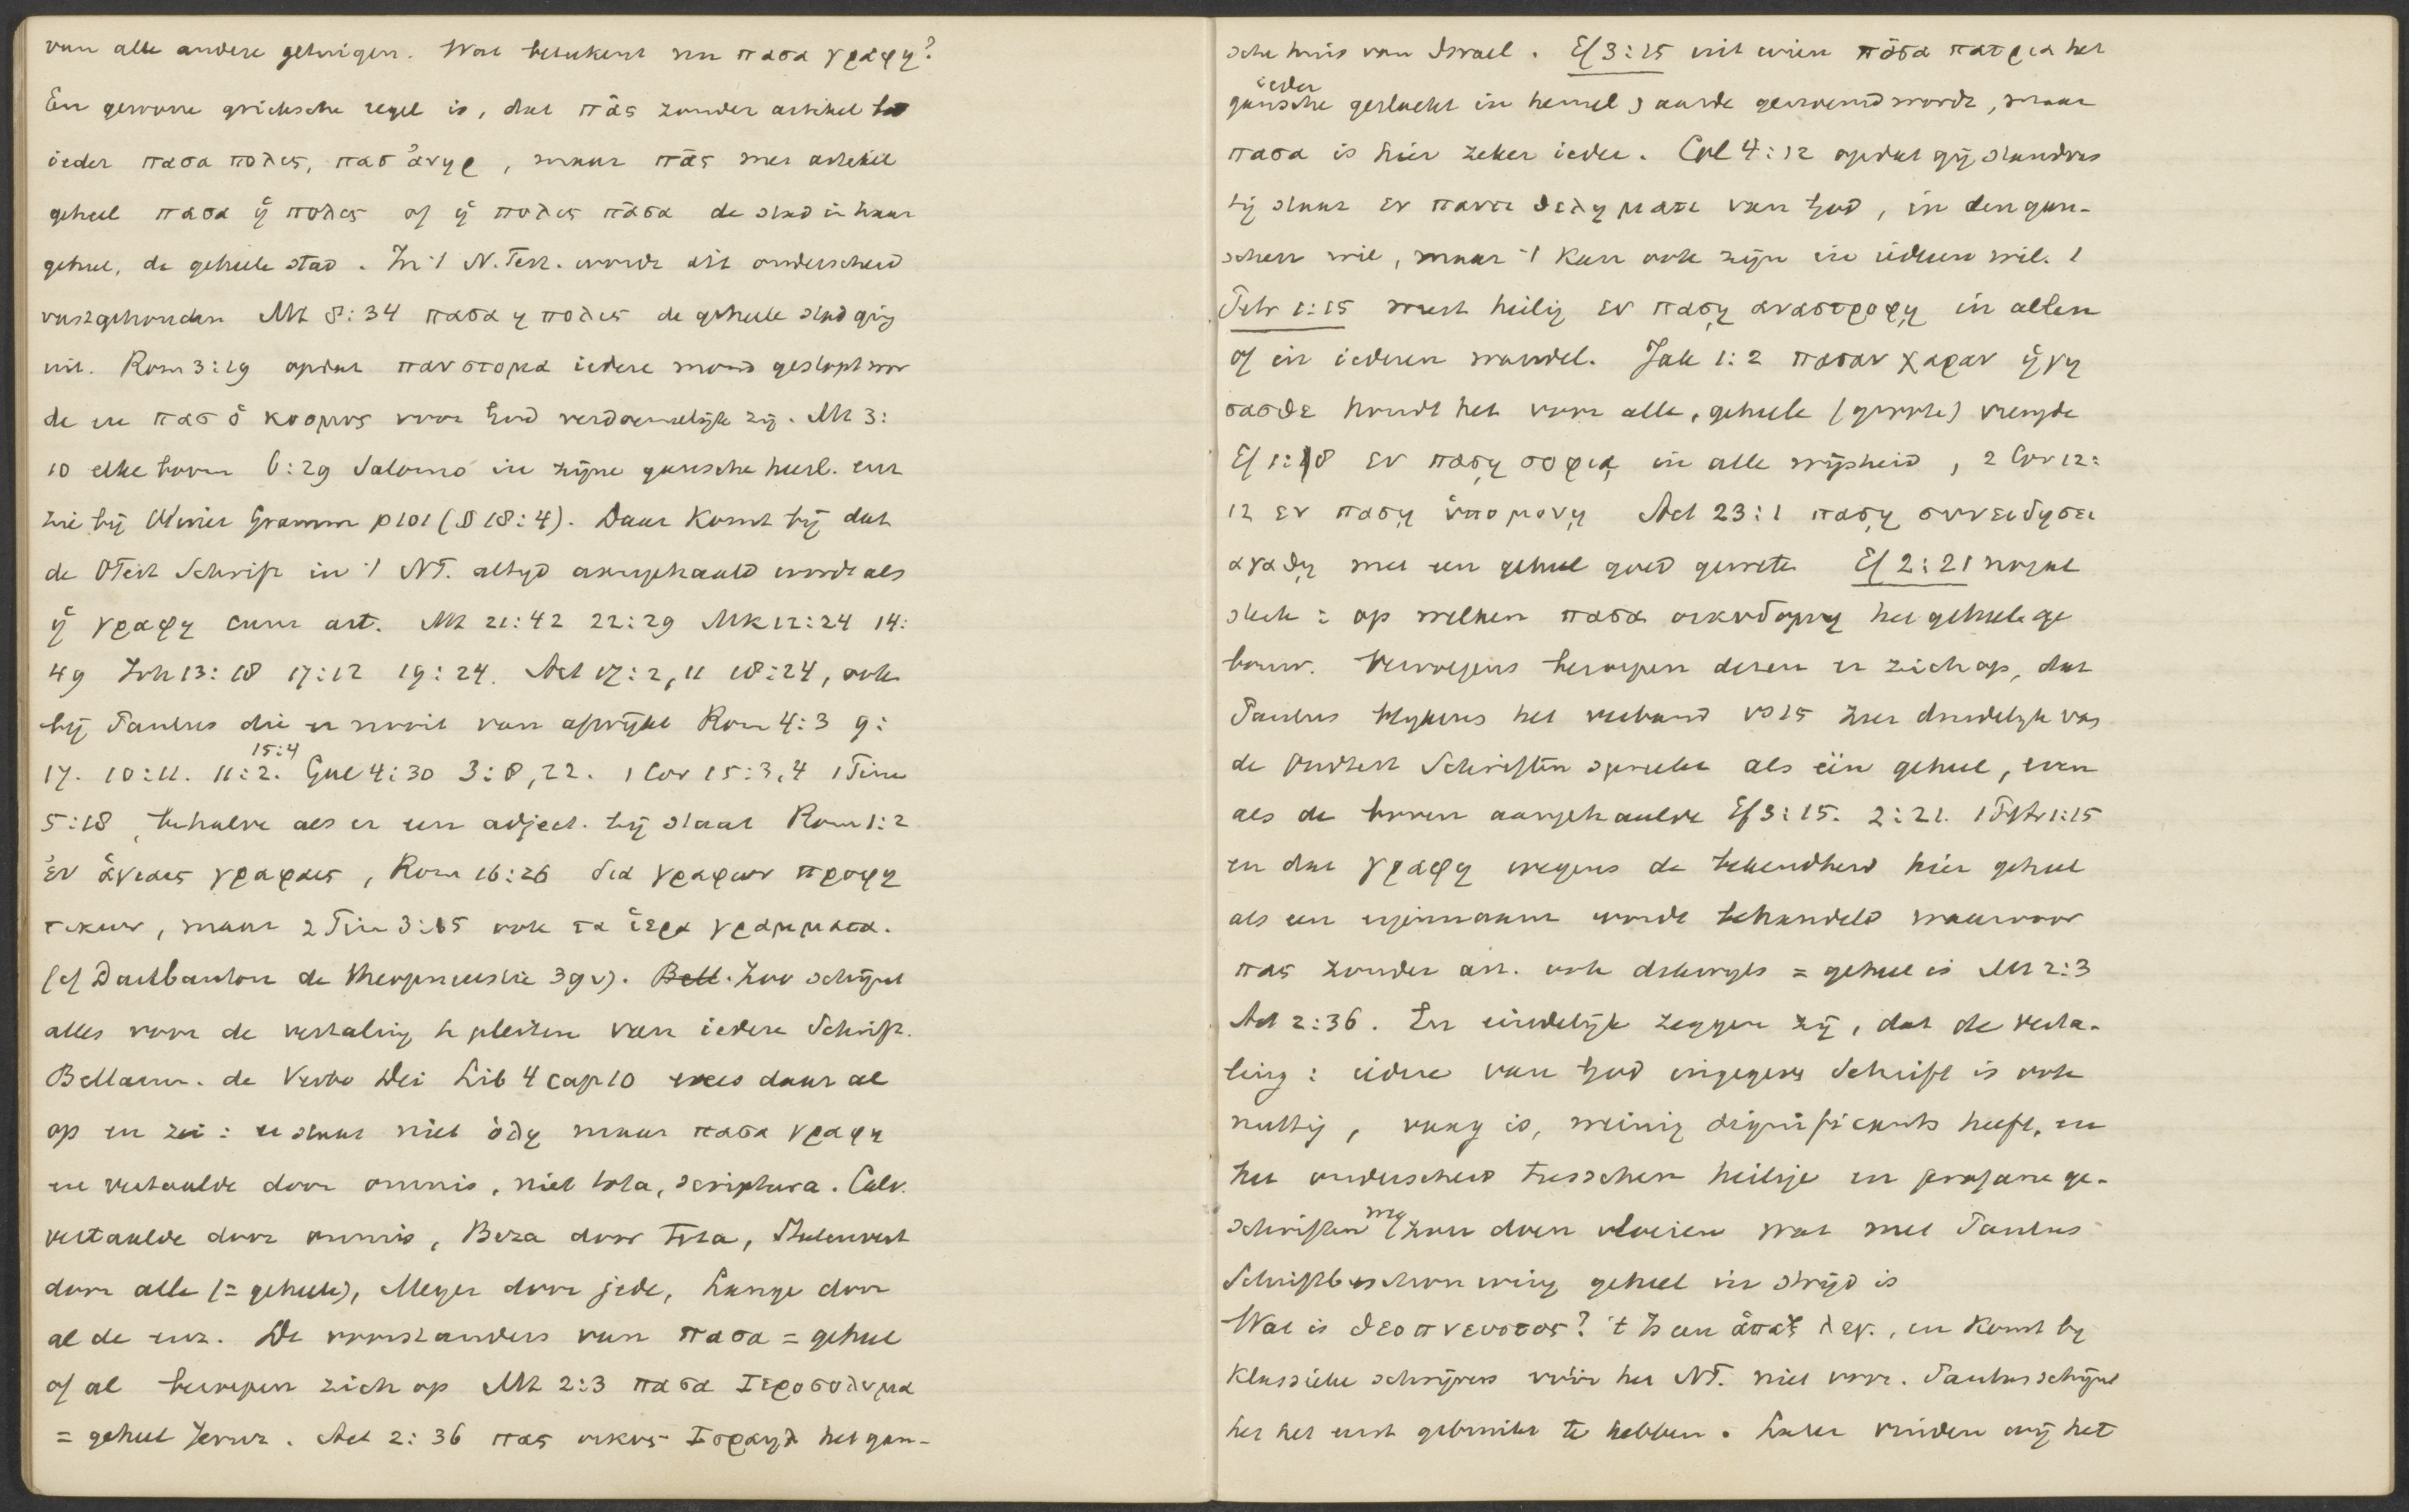 van alle andere getuigen. Wat beteekent nu πασα γραφη?
Een gewone grieksche regel is, dat πᾶς zonder artikel be
ieder πασα πολις, πασ ἀνηρ, maar πᾶς met artikel
geheel πασα ἡ πολις of ἡ πολις πᾶσα de stad in haar
geheel, de geheele stad. In 't N. Test. wordt dit onderscheid
vastgehouden Mt 8:34 πασα η πολις de geheele stad ging
uit. Rom 3:19 opdat παν στομα iedere mond gestopt wor
de en πασ ὁ κοσμος voor God verdoemelijk zij. Mt 3:
10 elke boom 6:29 Salomo in zijne gansche heerl. enz
zie bij Winer Gramm p 101 (§ 18:4). Daar komt bij dat
de OTest Schrift in 't NT. altijd aangehaald wordt als
ἡ γραφη cum art. Mt 21:42 22:29 Mk 12:24 14:
49 Joh 13:18 17:12 19:24. Act 17:2,11 18:24, ook
bij Paulus die er nooit van afwijkt Rom 4:3 9:
15:4
17. 10:11. 11:2. Gal 4:30 3:8,22. 1 Cor 15:3,4 1 Tim
5:18, behalve als er een adject. bij staat Rom 1:2
ἐν ἁγιαις γραφαις, Rom 16:26 δια γραφων προφη
τικων, maar 2 Tim 3:15 ook τα ἱερα γραμματα.
(cf Daubanton de Theopneustie 39v). Bell. Zoo schijnt
alles voor de vertaling te pleiten van iedere Schrift.
Bellarm. de Verbo Dei Lib 4 cap 10 wees daar al
op en zei: er staat niet ὁλη maar πασα γραφη
en vertaalde door omnis, niet tota, scriptura. Calv.
vertaalde door omnis, Beza door Tota, Statenvert
door alle (= geheele), Meyer door jede, Lange door
al de enz. De voorstanders van πασα = geheel
of al beroepen zich op Mt 2:3 πασα Ιεροσολυμα
= geheel Jeruz. Act 2:36 πας οικος Ισραηλ het gan-
sche huis van Israel. Ef 3:15 uit wien πᾶσα πατρια het
ieder
gansche geslacht in hemel & aarde genoemd wordt, maar
πασα is hier zeker ieder. Col 4:12 opdat gij standvas
tig staat εν παντι θεληματι van God, in den gan-
schen wil, maar 't kan ook zijn in iederen wil. 1
Petr 1:15 weest heilig εν πασῃ αναστροφῃ in allen
of in iederen wandel. Jak 1:2 πασαν χαραν ἡγη
σασθε houdt het voor alle, geheele (groote) vreugde
Ef 1:8 εν πασῃ σοφιᾳ in alle wijsheid, 2 Cor 12:
12 εν πασῃ ὑπομονῃ Act 23:1 πασῃ συνειδησει
αγαθῃ met een geheel goed geweten Ef 2:21 nogal
sterk: op welken πασα οικοδομη het geheele ge
bouw. Vervolgens beroepen dezen er zich op, dat
Paulus blijkens het verband vs 15 zeer duidelijk van
de Oudtest Schriften spreekt als één geheel, even
als de boven aangehaalde Ef 3:15. 2:21. 1 Petr 1:15
en dat γραφη wegens de bekendheid hier geheel
als een eigennaam wordt behandeld waarvoor
πας zonder art. ook dikwijls = geheel is Mt 2:3
Act 2:36. En eindelijk zeggen zij, dat de verta-
ling: iedere van God ingegeven Schrift is ook
nuttig, vaag is, weinig significants heeft, en
het onderscheid tusschen heilige en profane ge-
schriften zou doen vloeien wat met Paulus
Schriftbeschouwing geheel in strijd is
Wat is θεοπνευστος? 't Is een ἁπαξ λεγ., en komt bij
klassieke schrijvers vóór het NT. niet voor. Paulus schijnt
het het eerst gebruikt te hebben. Later vinden wij het